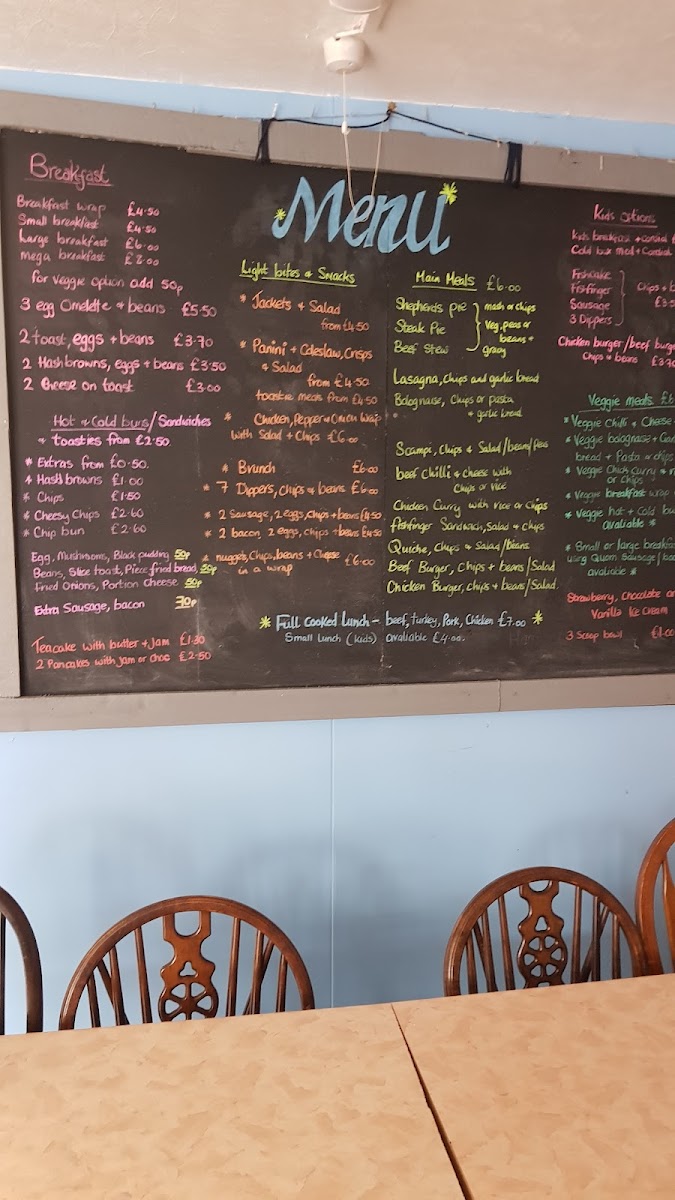 Menu
Breakfast
Breakfast wrap £4.50
Small breakfast £4.50
Large breakfast £6.00
mega breakfast £8.00
for veggie option add 50p
3 egg Omelette + beans £5.50
2 toast, eggs + beans £3.70
2 Hashbrowns, eggs + beans £3.50
2 Cheese on toast £3.00
Hot + Cold buns/Sandwiches
+ toasties from £2.50
* Extras from £0.50.
* Hash browns £1.00
* Chips £1.50
* Cheesy Chips £2.60
* Chip bun £2.60
Egg, Mushrooms, Black pudding 50p
Beans, Slice toast, Piece fried bread 50p
fried Onions, Portion Cheese 50p
Extra Sausage, bacon 70p
Teacake with butter + Jam £1.30
2 Pancakes with Jam or choc £2.50
Light bites & Snacks
* Jackets + Salad
from £4.50
* Panini + Coleslaw, Crisps
+ Salad
from £4.50
toastie meals from £4.50
* Chicken, Pepper + Onion Wrap
with Salad + Chips £6.00
* Brunch £6.00
* 7 Dippers, Chips + beans £6.00
* 2 Sausage, 2 eggs, chips + beans £4.50
* 2 bacon, 2 eggs, chips + beans £4.50
* nuggets, Chips, beans + Cheese
in a wrap £6.00
Main Meals £6.00
Shepherds Pie
Steak Pie
Beef Stew
mash or chips
Veg, peas or
beans +
gravy
Lasagna, Chips and garlic bread
Bolognaise, Chips or Pasta
+ garlic bread
Scampi, Chips + Salad/beans/Peas
beef Chilli + Cheese with
Chips or rice
Chicken Curry with rice or chips
fishfinger Sandwich, Salad + chips
Quiche, Chips + Salad/Beans
Beef Burger, Chips + beans/Salad
Chicken Burger, chips + beans/Salad
* Full Cooked Lunch - beef, turkey, Pork, Chicken £7.00 *
Small Lunch (kids) avaliable £4.00.
Kids options
Kids breakfast + cordial
Cold bun meal + Cordial
Fishcake
Fishfinger
Sausage
3 Dippers
Chips +
£3.5
Chicken burger/beef burge
Chips + beans £3.7
Veggie meals £6
* Veggie Chilli + Cheese
* Veggie bolognaise + Gar
bread + Pasta or chips
* Veggie Chick Curry +
or chips
* Veggie breakfast wrap
* Veggie hot + Cold bu
avaliable *
* Small or large breakfa
using Quorn Sausage/
avaliable *
Strawberry, Chocolate or
Vanilla Ice Cream
3 Scoop bowl £1.00